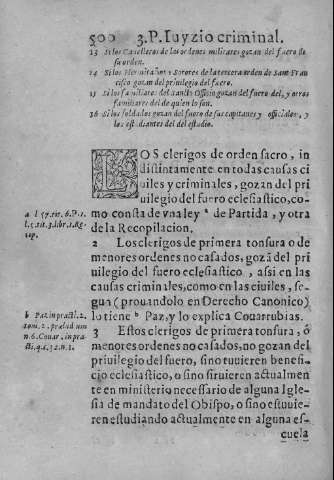 500 3.P. Iuyzio criminal.
13 Si los Caualleros de los ordenes militares gozan del fuero de
su orden.
14 Si los Hermitaños y Sorores de la tercera orden de San Fran
cisco gozan del priuilegio del fuero.
15 Si los familiares del sancto Officio gozan del fuero del, y otros
familiares del de quien lo son.
16 Si los soldados gozan del fuero de sus capitanes y officiales, y
los estudiantes del del estudio.
LOS clerigos de orden sacro, in
distintamente en todas causas ci
uiles y criminales, gozan del pri
uilegio del fuero eclesiastico, co-
mo consta de vna ley a de Partida, y otra
de la Recopilacion.
2 Los clerigos de primera tonsura o de
menores ordenes no casados, gozã del pri
uilegio del fuero eclesiastico, assi en las
causas criminales, como en las ciuiles, se-
gun (prouandolo en Derecho Canonico)
lo tiene b Paz, y lo explica Couarrubias.
3 Estos clerigos de primera tonsura, ó
menores ordenes no casados, no gozan del
priuilegio del fuero, sino tuuieren benefi-
cio eclesiastico, o sino siruieren actualmen
te en ministerio necessario de alguna Igle-
sia de mandato del Obispo, o sino estuuie-
ren estudiando actualmente en alguna es-
cuela
a l. 57. tit. 6. P. 1.
l. 1. tit.
cop.
b Paz in pract. 2.
tom. 2. prælud.
n. 6. Couar. in pra-
cti. q.